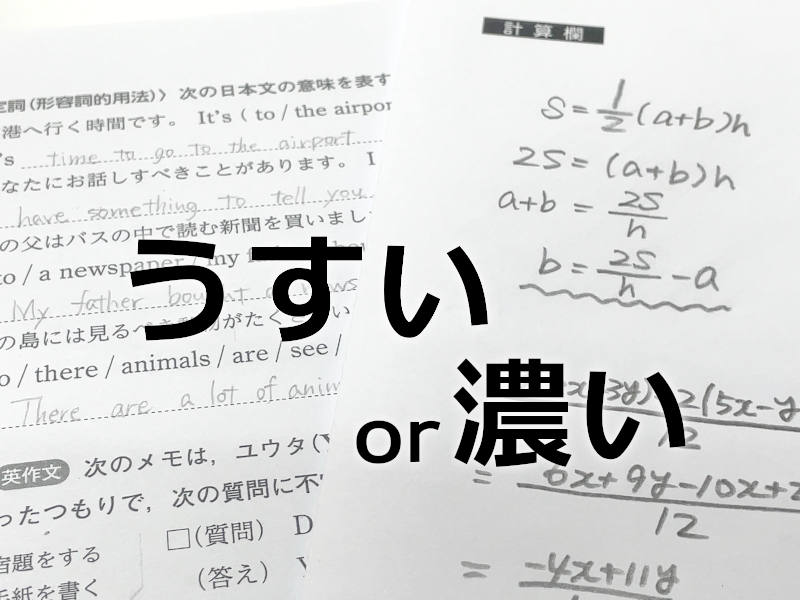 定詞(形容詞的用法)〉 次の日本文の意味を表す
港へ行く時間です。 It's ( to / the airpor
's time to go to the airport
なたにお話しすべきことがあります。 I
have something to tell you
の父はバスの中で読む新聞を買いまし
to / a newspaper / my
My father bought a news
の島には見るべき がたく い
o / there / animals / are / see /
There are a lot of anim
英作文 次のメモは, ユウタ(Y
ったつもりで, 次の質問に不
宿題をする
手紙を書く
□(質問) D
(答え)
計算欄
S=1/2(a+b)h
2S=(a+b)h
a+b=2S/h
b=2S/h-a
x 3y) 2(5x-y
12
= 6x+9y-10x+2
12
= -4x+11y
うすい
or 濃い